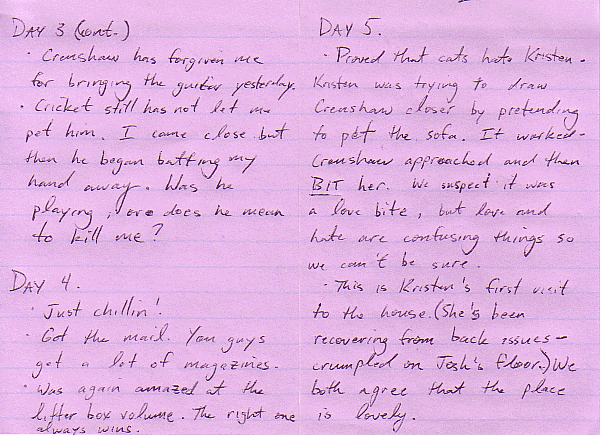 DAY 3 (cont.)
· Crenshaw has forgiven me
for bringing the guitar yesterday.
· Cricket still has not let me
pet him. I came close but
then he began batting my
hand away. Was he
playing, or does he mean
to kill me?
DAY 4.
· Just chillin'.
· Got the mail. You guys
get a lot of magazines.
· Was again amazed at the
litter box volume. The right one
always wins.
DAY 5.
· Proved that cats hate Kristen.
Kristen was trying to draw
Crenshaw closer by pretending
to pet the sofa. It worked-
Crenshaw approached and then
BIT her. We suspect it was
a love bite, but love and
hate are confusing things so
we can't be sure.
· This is Kristen's first visit
to the house. (She's been
recovering from back issues-
crumpled on Josh's floor.) We
both agree that the place
is lovely.